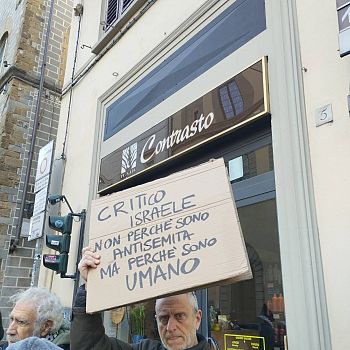 Contrasto
CRITICO
ISRAELE
NON PERCHÈ SONO
ANTISEMITA
MA PERCHÈ SONO
UMANO
5